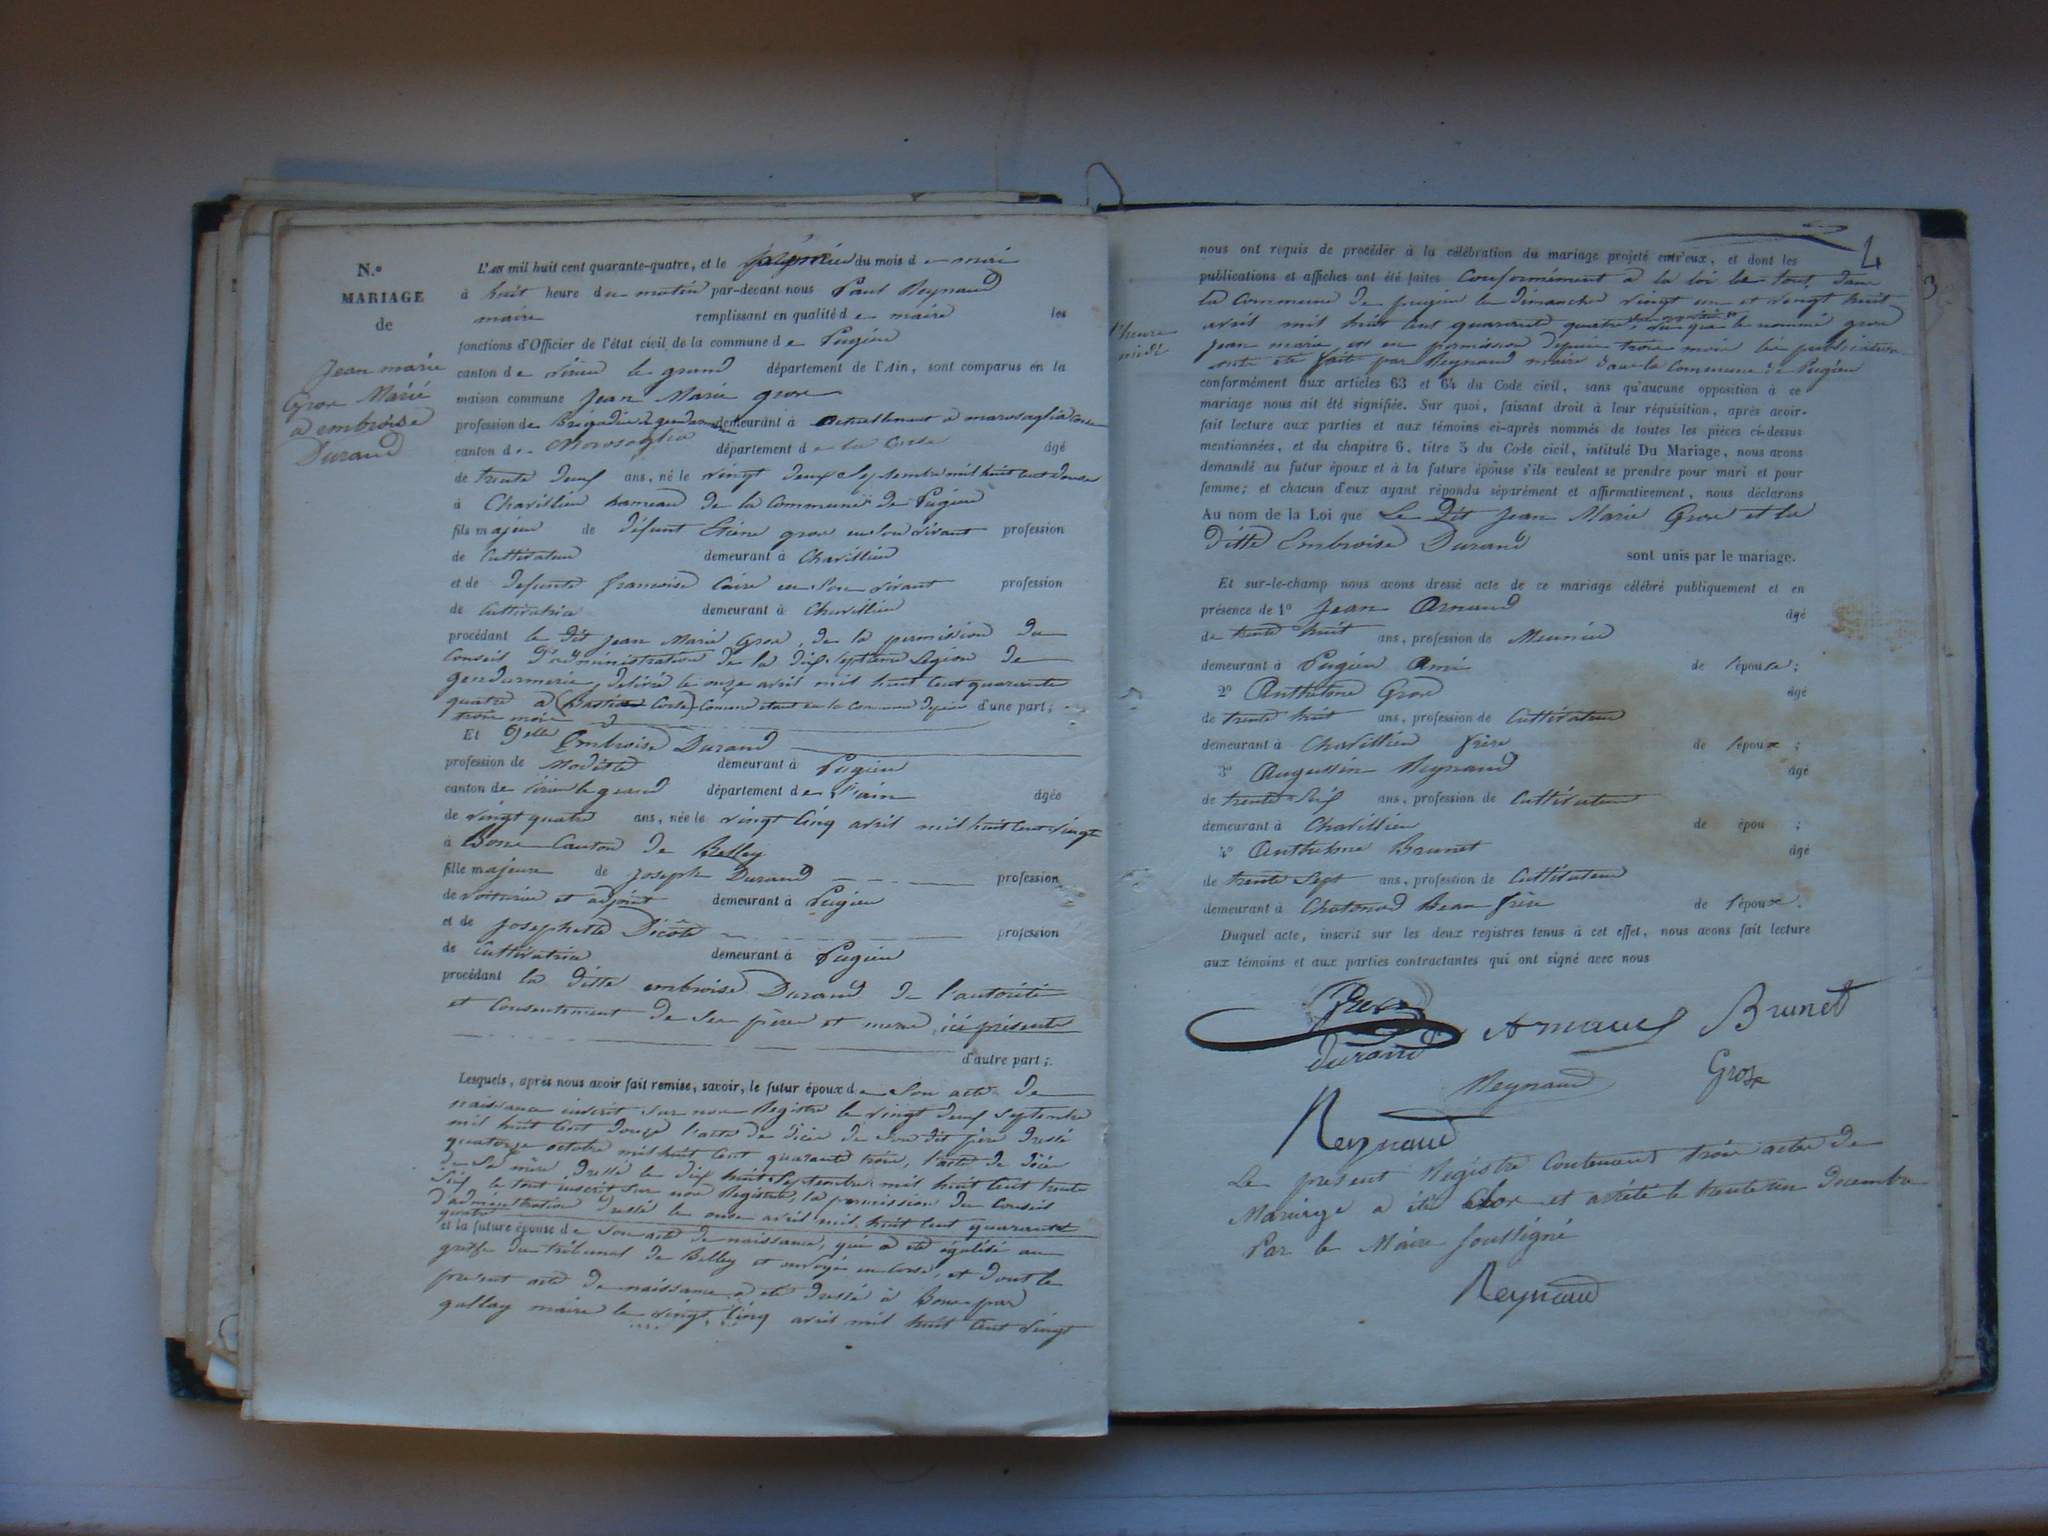 N.°
MARIAGE
de
Jean marie
Grox Marié
a embroise
Durand
L'an mil huit cent quarante-quatre, et le du mois de mai
à huit heure du matin par-devant nous Paul Reynaud
maire remplissant en qualité de maire les
fonctions d'Officier de l'état civil de la commune de Pugieu
canton de virieu le grand département de l'Ain, sont comparus en la
maison commune Jean Marie grox
profession de Brigadier de gendarmerie demeurant à actuellement a marosaglia Corse
canton de Morosaglia département de la Corse âgé
de trente deux ans, né le vingt deux Septembre mil huit cent douze
à Chavillieu hameau de la Commune de Pugieu
fils majeur de défunt Etiene grox en son vivant profession
de Cultivateur demeurant à Chavillieu
et de defunte francoise Caire en son vivant profession
de Cultivatrice demeurant à Chavillieu
procédant le dit Jean Marie Grox, de la permission du
Conseil d'administration de la dix septieme Légion de
gendarmerie, délivré le onze avril mil huit Cent quarante
quatre a (Bastia Corse) Comme etant en la Commune depuis d'une part;
trois mois
Et Delle Embroise Durand
profession de Modiste demeurant à Pugieu
canton de virieu le grand département de l'ain âgée
de vingt quatre ans, née le vingt Cinq avril mil huit Cent vingt
à Bons Canton de Belley
fille majeure de Joseph Durand profession
de voiturier et adjoint demeurant à Pugieu
et de Josephette Dicôte profession
de Cultivatrice demeurant à Pugieu
procédant la ditte embroise Durand de l'autorité
et Consentement de Ses père et mere, ici présents
d'autre part;.
Lesquels, après nous avoir fait remise, savoir, le futur époux de Son acte de
naissance inscrit sur nos Registre le vingt deux Septembre
mil huit Cent douze l'acte de décès de Son dit père dressé
quatorze octobre mil huit Cent quarante trois, l'acte de décès
de Sa mère dressé le dix huit Septembre mil huit Cent trente
Six le tout inscrit sur nos Registres, la permission du Conseil
d'administration dressé le onze avril mil huit Cent quarante
quatre
et la future épouse de Son acte de naissance, qui a été égalisé au
greffe du tribunal de Belley et envoyé en Corse, et dont le
present acte de naissance a été dressé à Bons par
gallay maire le vingt Cinq avril mil huit Cent vingt
4
3
nous ont requis de procéder à la célébration du mariage projeté entr'eux, et dont les
publications et affiches ont été faites Conformément a la loi le tout dans
la Commune de pugieu le dimanche vingt un et vingt huit
avril mil huit Cent quarante quatre vu que le nommé grox
Jean marie est en permission depuis trois mois les publications
ont été fait par Reynaud maire dans la Commune de Pugieu
l'heure
midi
conformément aux articles 63 et 64 du Code civil, sans qu'aucune opposition à ce
mariage nous ait été signifiée. Sur quoi, faisant droit à leur réquisition, après avoir
fait lecture aux parties et aux témoins ci-après nommés de toutes les pièces ci-dessus
mentionnées, et du chapitre 6, titre 5 du Code civil, intitulé Du Mariage, nous avons
demandé au futur époux et à la future épouse s'ils veulent se prendre pour mari et pour
femme; et chacun d'eux ayant répondu séparément et affirmativement, nous déclarons
Au nom de la Loi que Le Dit Jean Marie Grox et la
ditte Embroise Durand
sont unis par le mariage.
Et sur-le-champ nous avons dressé acte de ce mariage célébré publiquement et en
présence de 1° Jean Arnaud âgé
de trente huit ans, profession de Meunier
demeurant à Pugieu Ami de l'épouse;
2° Anthelme Grox âgé
de trente huit ans, profession de Cultivateur
demeurant à Chavillieu frère de l'époux;
3° Augustin Reynaud âgé
de trente Six ans, profession de Cultivateur
demeurant à Chavillieu de épou ;
4° Anthelme Brunet âgé
de trente Sept ans, profession de Cultivateur
demeurant à Chatonod Beau frère de l'époux.
Duquel acte, inscrit sur les deux registres tenus à cet effet, nous avons fait lecture
aux témoins et aux parties contractantes qui ont signé avec nous
Grox Arnaud Brunet
Durand
Reynaud Grox
Reynaud
Le present Registre Contenant trois actes de
Mariage a été Clos et arrêté le trente un Decembre
Par le Maire Soussigné
Reynaud